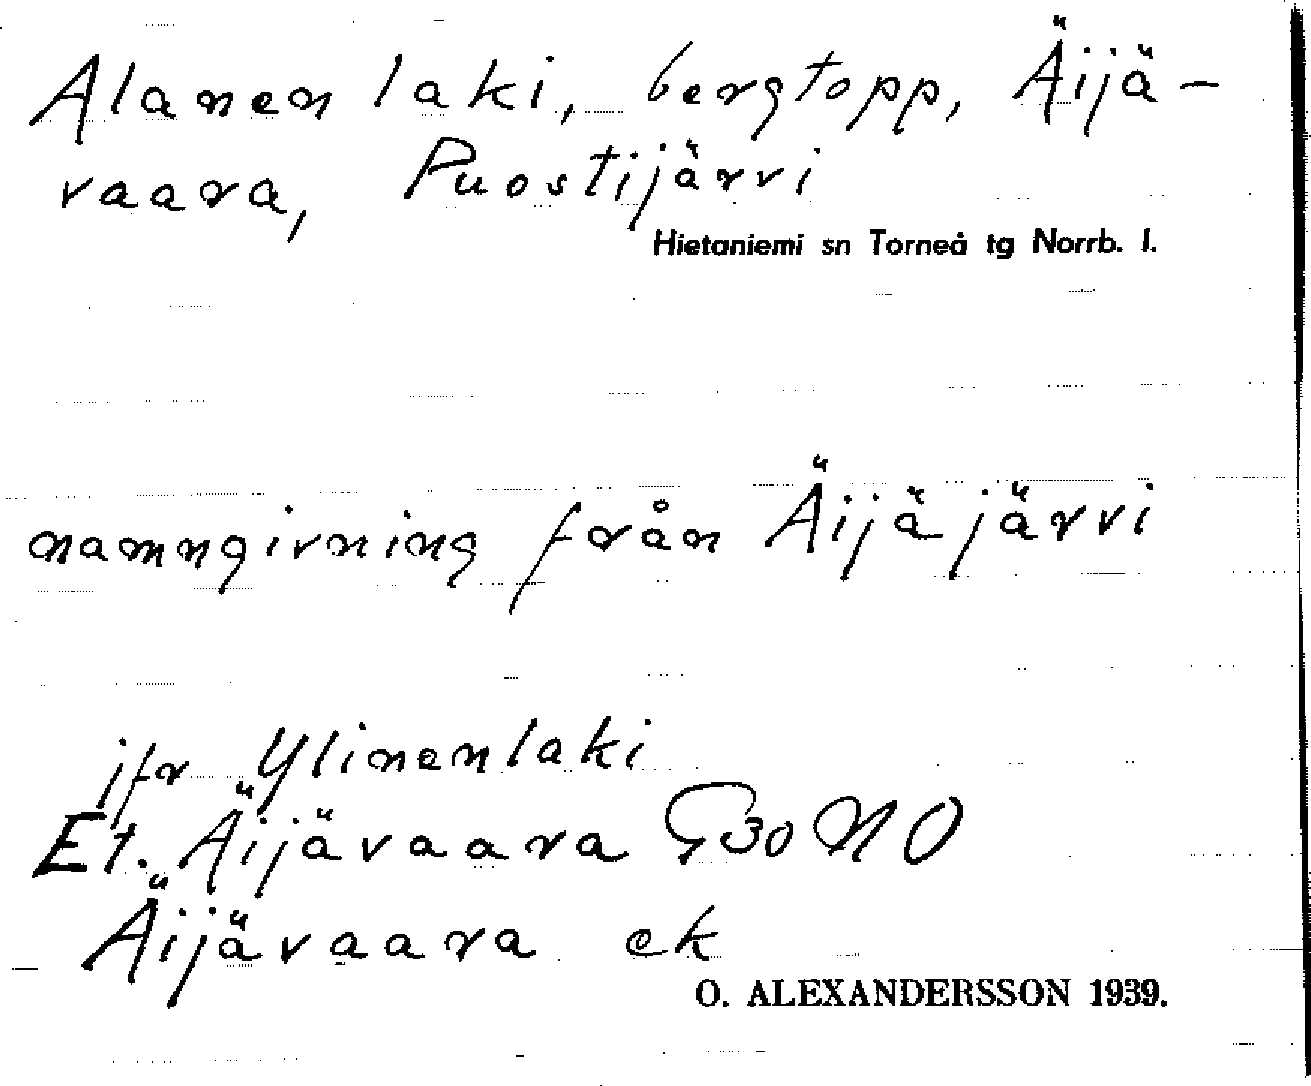 Alanenlaki, bergtopp, Äijä-
vaara, Puostijärvi
Hietaniemi sn Torneå tg Norrb. l.
namngivning från Äijäjärvi
jfr Ylinenlaki
Et. Äijävaara G30 NO
Äijävaara ek
O. ALEXANDERSSON 1939.